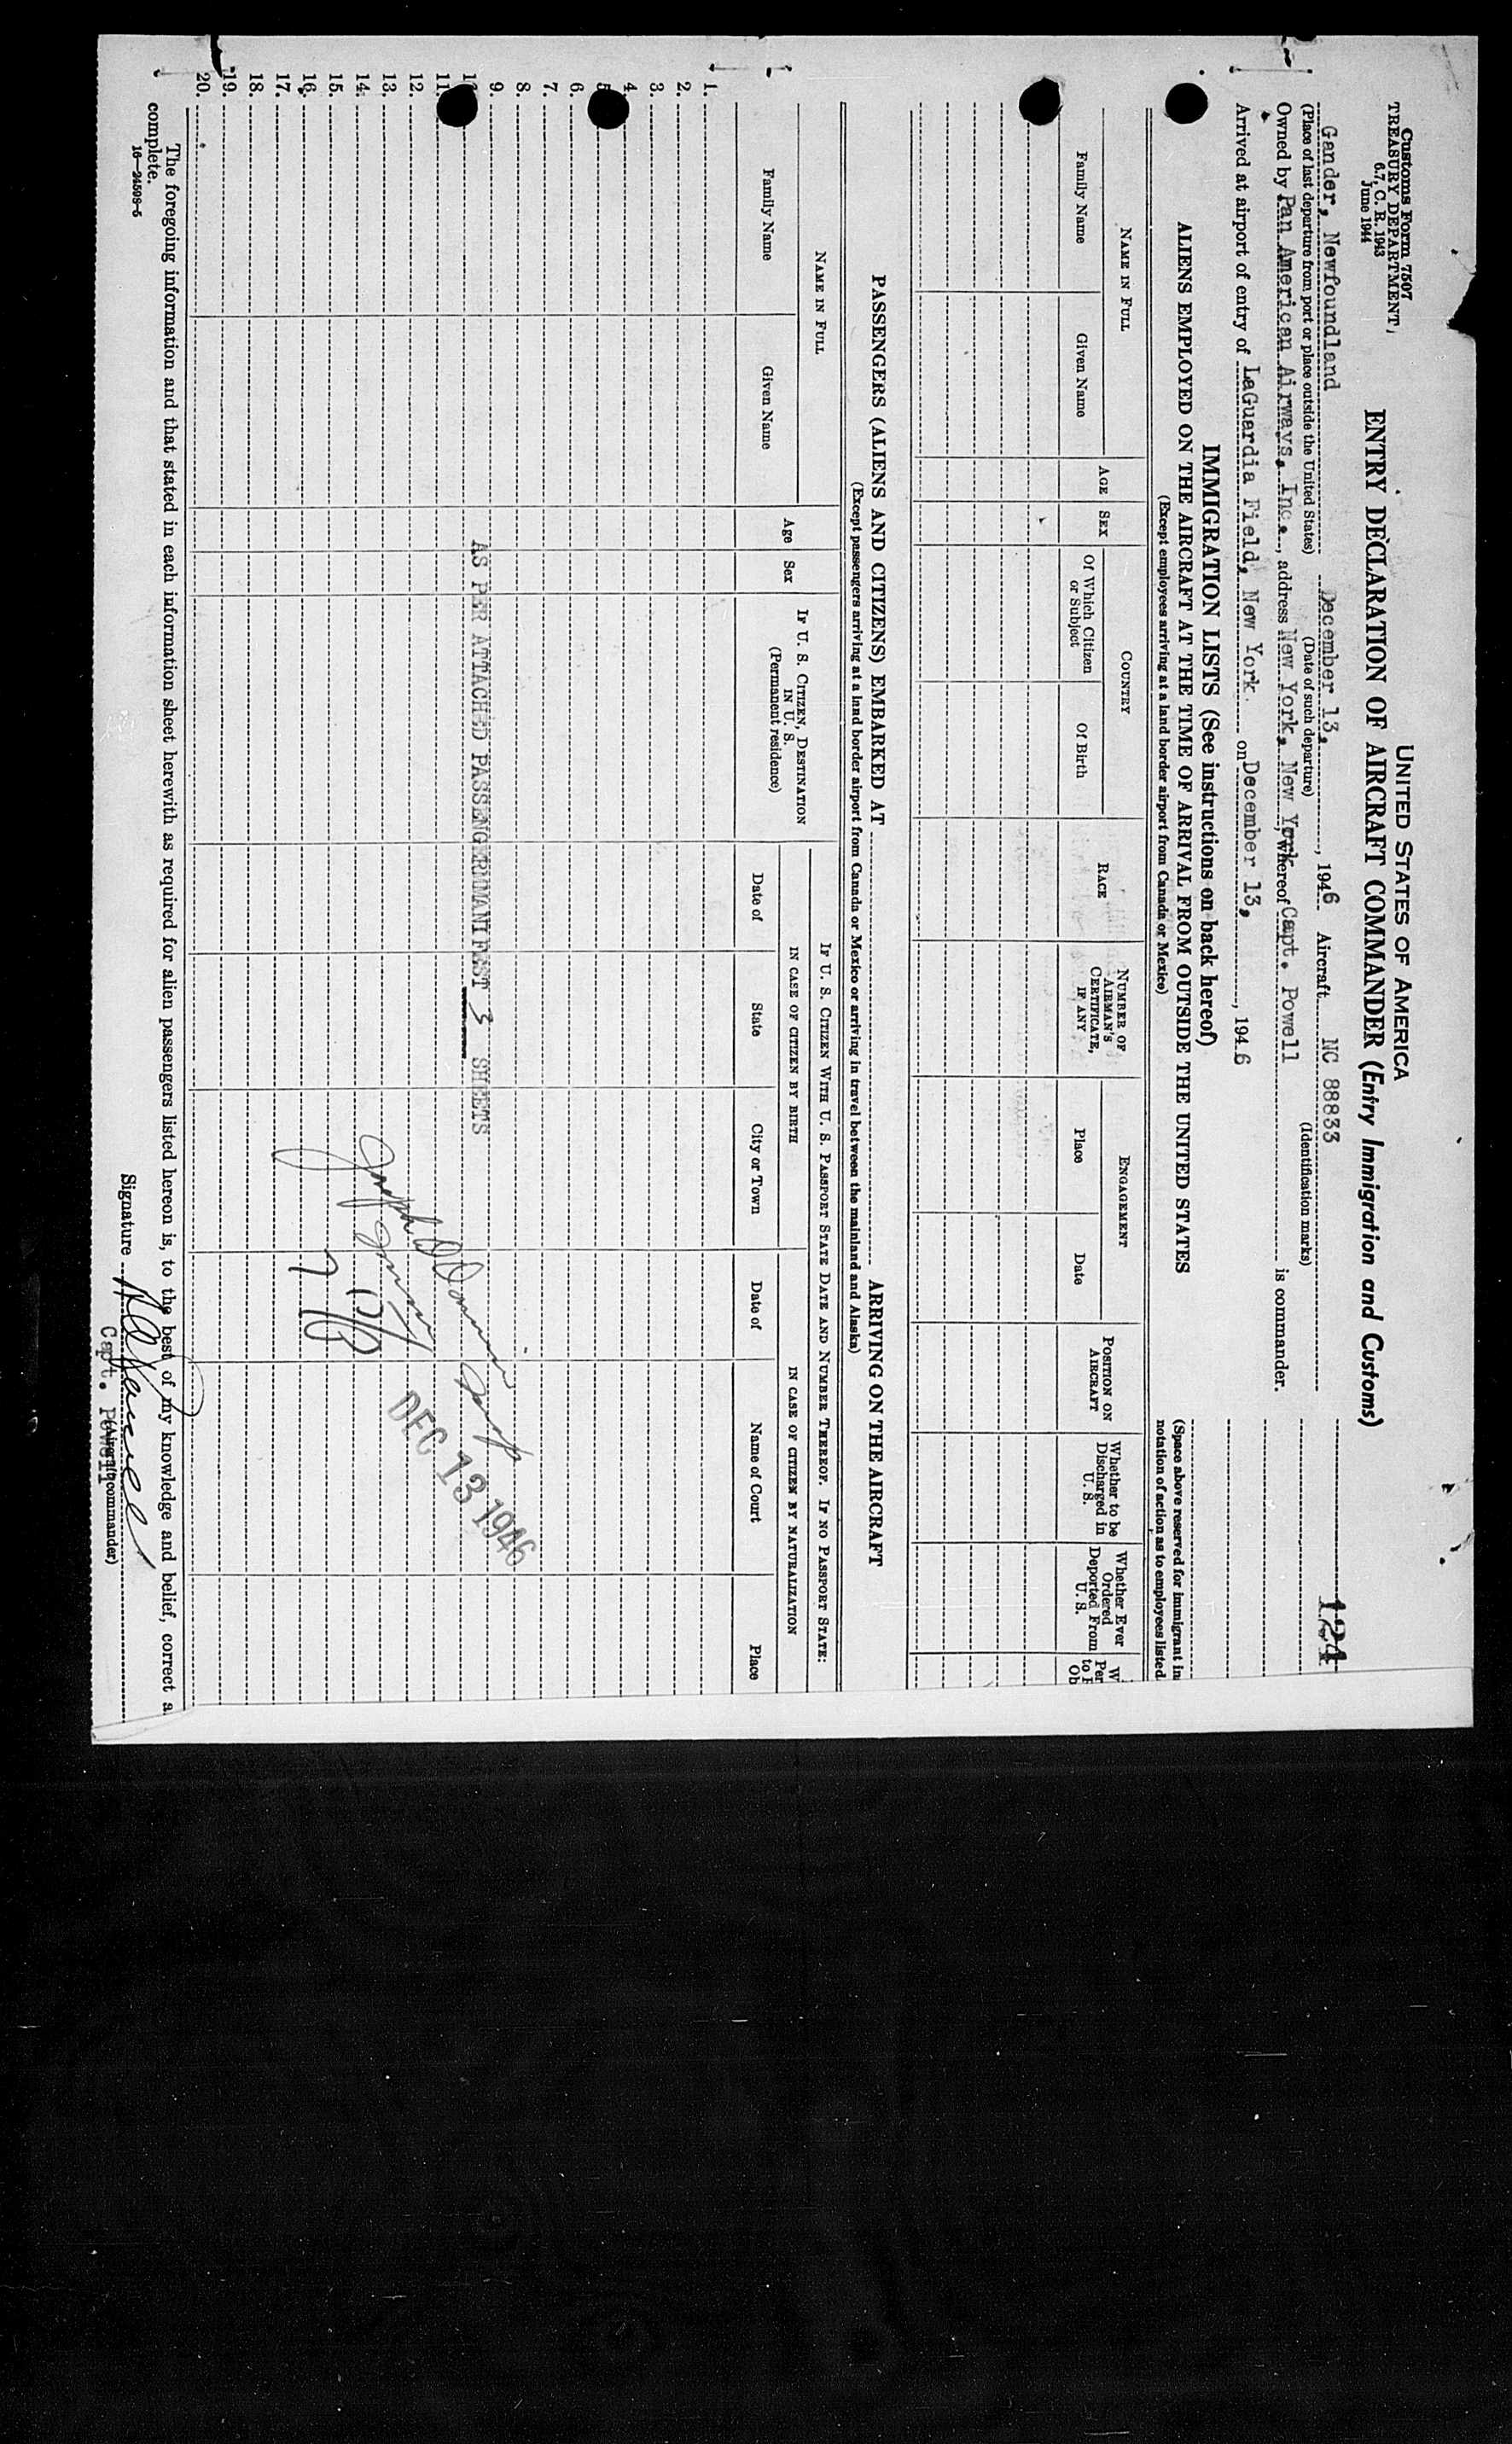 Customs Form 7507
TREASURY DEPARTMENT
6.7, C. R. 1943
June 1944
UNITED STATES OF AMERICA
ENTRY DECLARATION OF AIRCRAFT COMMANDER (Entry Immigration and Customs)
124
Gander, Newfoundland December 13, 1946 Aircraft NC 88833
(Place of last departure from port or place outside the United States) (Date of such departure) (Identification marks)
Owned by Pan American Airways, Inc., address New York, New York, whereof Capt. Powell is commander.
Arrived at airport of entry of LaGuardia Field, New York. on December 13, 1946
IMMIGRATION LISTS (See instructions on back hereof)
ALIENS EMPLOYED ON THE AIRCRAFT AT THE TIME OF ARRIVAL FROM OUTSIDE THE UNITED STATES
(Except employees arriving at a land border airport from Canada or Mexico)
(Space above reserved for immigrant in
notation of action as to employees listed
NAME IN FULL
Family Name
Given Name
AGE
SEX
COUNTRY
Of Which Citizen or Subject
Of Birth
RACE
NUMBER OF AIRMAN'S CERTIFICATE, IF ANY
ENGAGEMENT
Place
Date
POSITION ON AIRCRAFT
Whether to be Discharged in U. S.
Whether Ever Ordered Deported From U. S.
W
Per
to
Ob
PASSENGERS (ALIENS AND CITIZENS) EMBARKED AT ARRIVING ON THE AIRCRAFT
(Except passengers arriving at a land border airport from Canada or Mexico or arriving in travel between the mainland and Alaska)
NAME IN FULL
Family Name
Given Name
Age
Sex
IF U. S. CITIZEN, DESTINATION IN U. S.
(Permanent residence)
IF U. S. CITIZEN WITH U. S. PASSPORT STATE DATE AND NUMBER THEREOF. IF NO PASSPORT STATE:
IN CASE OF CITIZEN BY BIRTH
IN CASE OF CITIZEN BY NATURALIZATION
Date of
State
City or Town
Date of
Name of Court
Place
1.
2.
3.
4.
5
6.
7.
8.
9.
10
11
12.
13.
14.
15.
16.
17.
18.
19.
20.
AS PER ATTACHED PASSENGER MANIFEST 3 SHEETS
DEC 13 1946
The foregoing information and that stated in each information sheet herewith as required for alien passengers listed hereon is, to the best of my knowledge and belief, correct a
complete.
16—24598-5
Signature
Capt. Powell
(Aircraft commander)